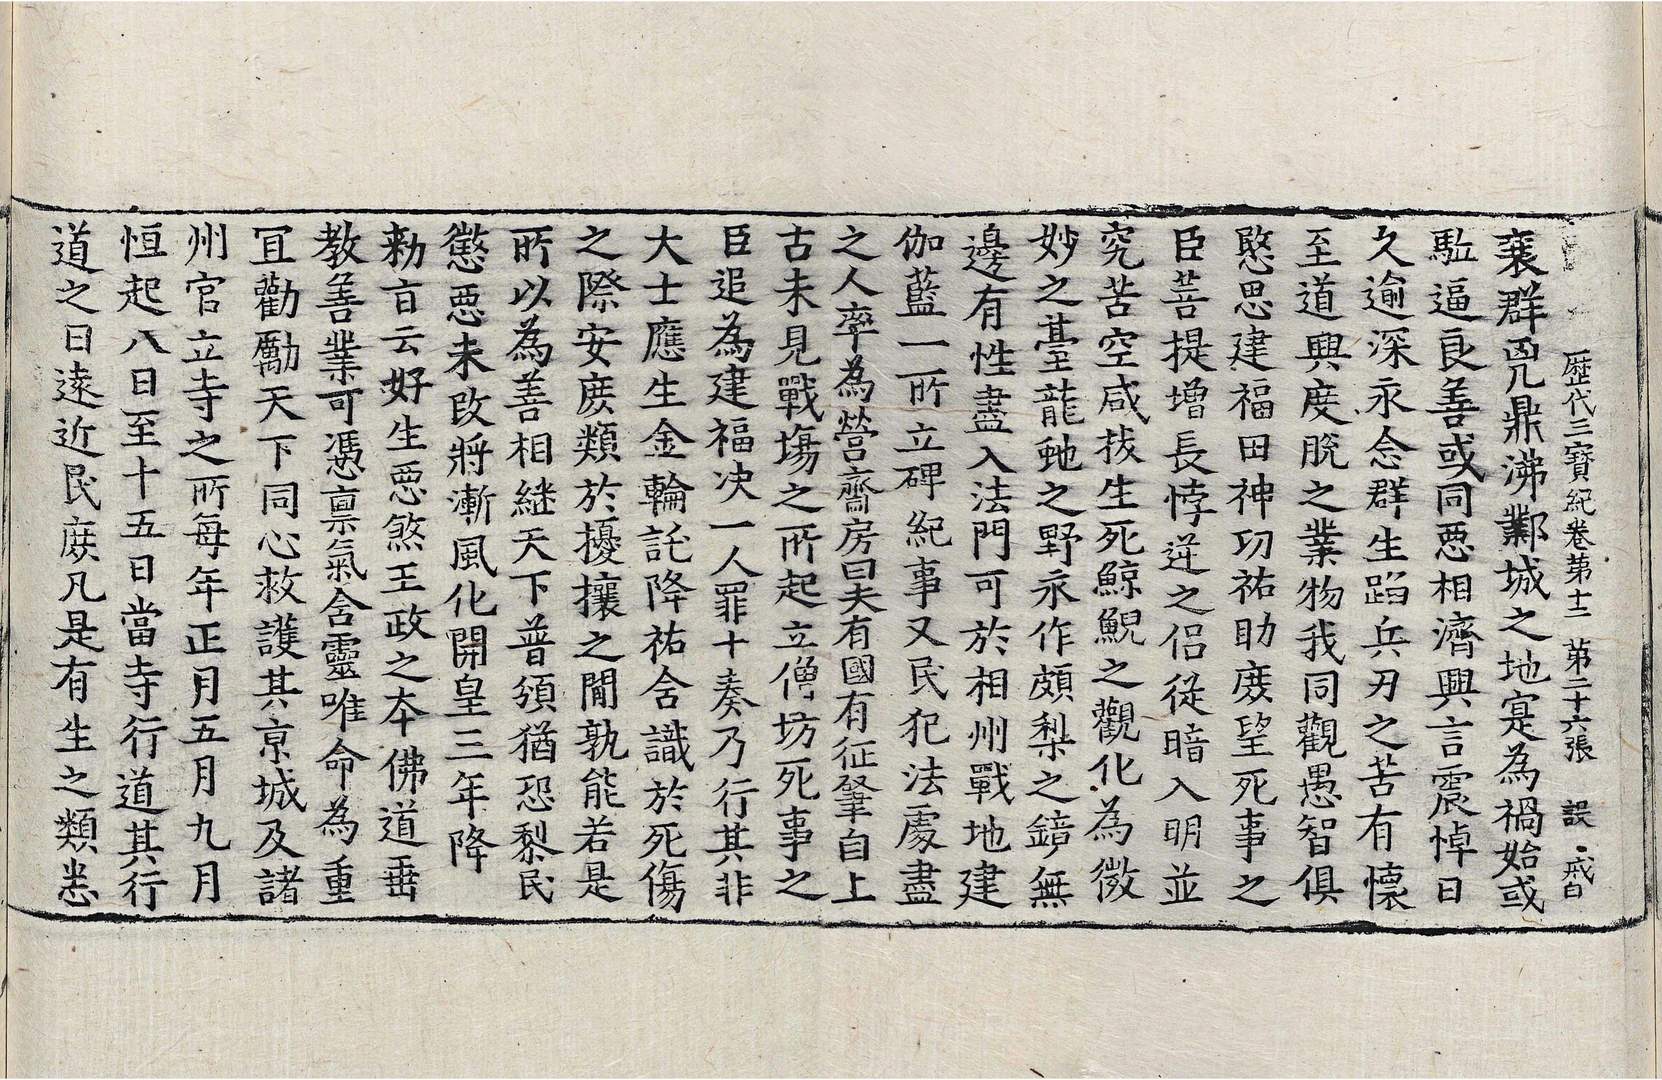 歷代三寶紀卷第十二 第二十六張 誤 戒白
襄群凶鼎沸鄴城之地寔為禍始或
駈逼良善或同惡相濟興言震悼日
久逾深永念群生蹈兵刃之苦有懷
至道興度脫之業物我同觀愚智俱
愍思建福田神功祐助庶望死事之
臣菩提增長悖逆之侶從暗入明並
究苦空咸拔生死鯨鯢之觀化為微
妙之臺龍虵之野永作頗梨之鏡無
邊有性盡入法門可於相州戰地建
伽藍一所立碑紀事又民犯法處盡
之人率為營齋房曰夫有國有征肇自上
古未見戰場之所起立僧坊死事之
臣追為建福决一人罪十奏乃行其非
大士應生金輪託降祐含識於死傷
之際安庶類於擾攘之間孰能若是
所以為善相継天下普頒猶恐黎民
懲惡未改將漸風化開皇三年降
勑旨云好生惡煞王政之本佛道垂
教善業可憑禀氣含靈唯命為重
宜勸勵天下同心救護其京城及諸
州官立寺之所每年正月五月九月
恒起八日至十五日當寺行道其行
道之日遠近民庶凡是有生之類悉